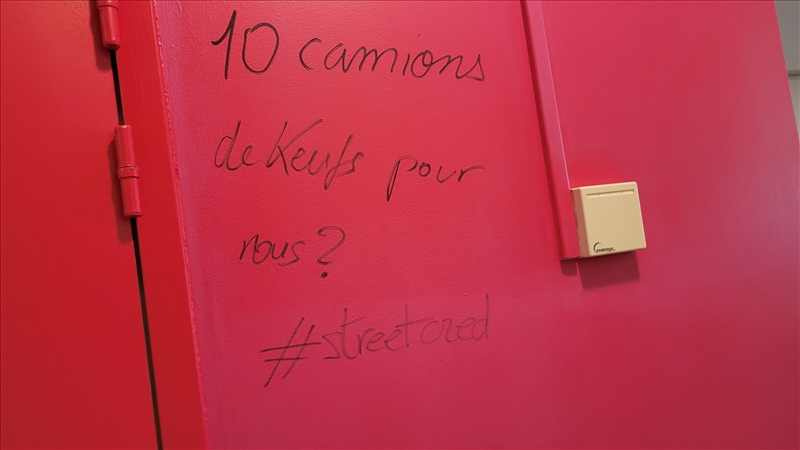 10 camions
de Keufs pour
nous?
#streetcred
invensys